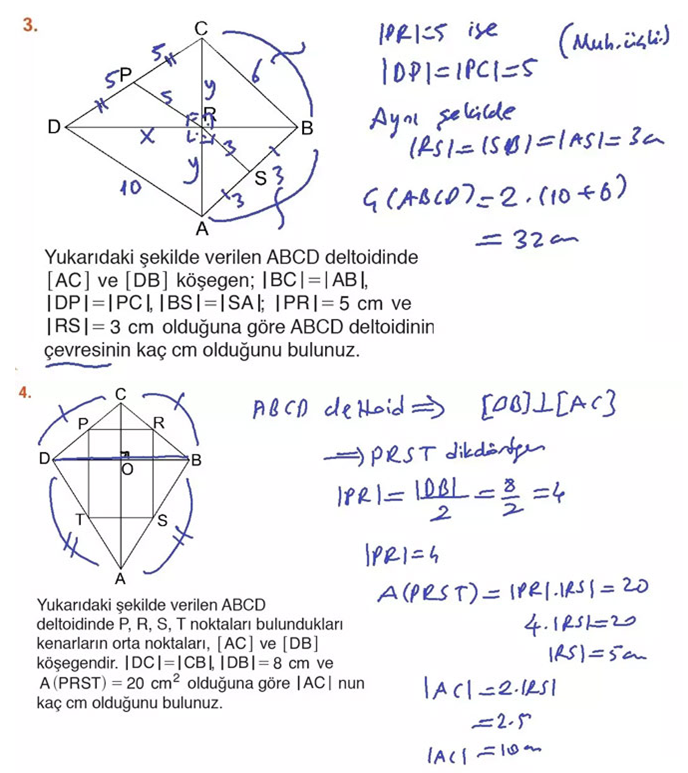 3.
C
5
P
5
6
5
y
D
R
x
B
3
y
S
3
10
3
A
|PR|=5 ise
(Muh. üçlü)
|DP|=|PC|=5
Aynı şekilde
|RS|=|SB|=|AS|=3cm
Ç(ABCD)=2.(10+6)
=32cm
Yukarıdaki şekilde verilen ABCD deltoidinde
[AC] ve [DB] köşegen; |BC|=|AB|,
|DP|=|PC|, |BS|=|SA|; |PR|= 5 cm ve
|RS|= 3 cm olduğuna göre ABCD deltoidinin
çevresinin kaç cm olduğunu bulunuz.
4.
C
P
R
D
O
B
T
S
A
ABCD deltoid ⇒ [DB]⊥[AC]
⇒ PRST dikdörtgen
|PR|=|DB|/2=8/2=4
|PR|=4
A(PRST)=|PR|.|RS|=20
4.|RS|=20
|RS|=5cm
|AC|=2.|RS|
=2.5
|AC|=10cm
Yukarıdaki şekilde verilen ABCD
deltoidinde P, R, S, T noktaları bulundukları
kenarların orta noktaları, [AC] ve [DB]
köşegendir. |DC|=|CB|, |DB|=8 cm ve
A(PRST) = 20 cm² olduğuna göre |AC| nun
kaç cm olduğunu bulunuz.